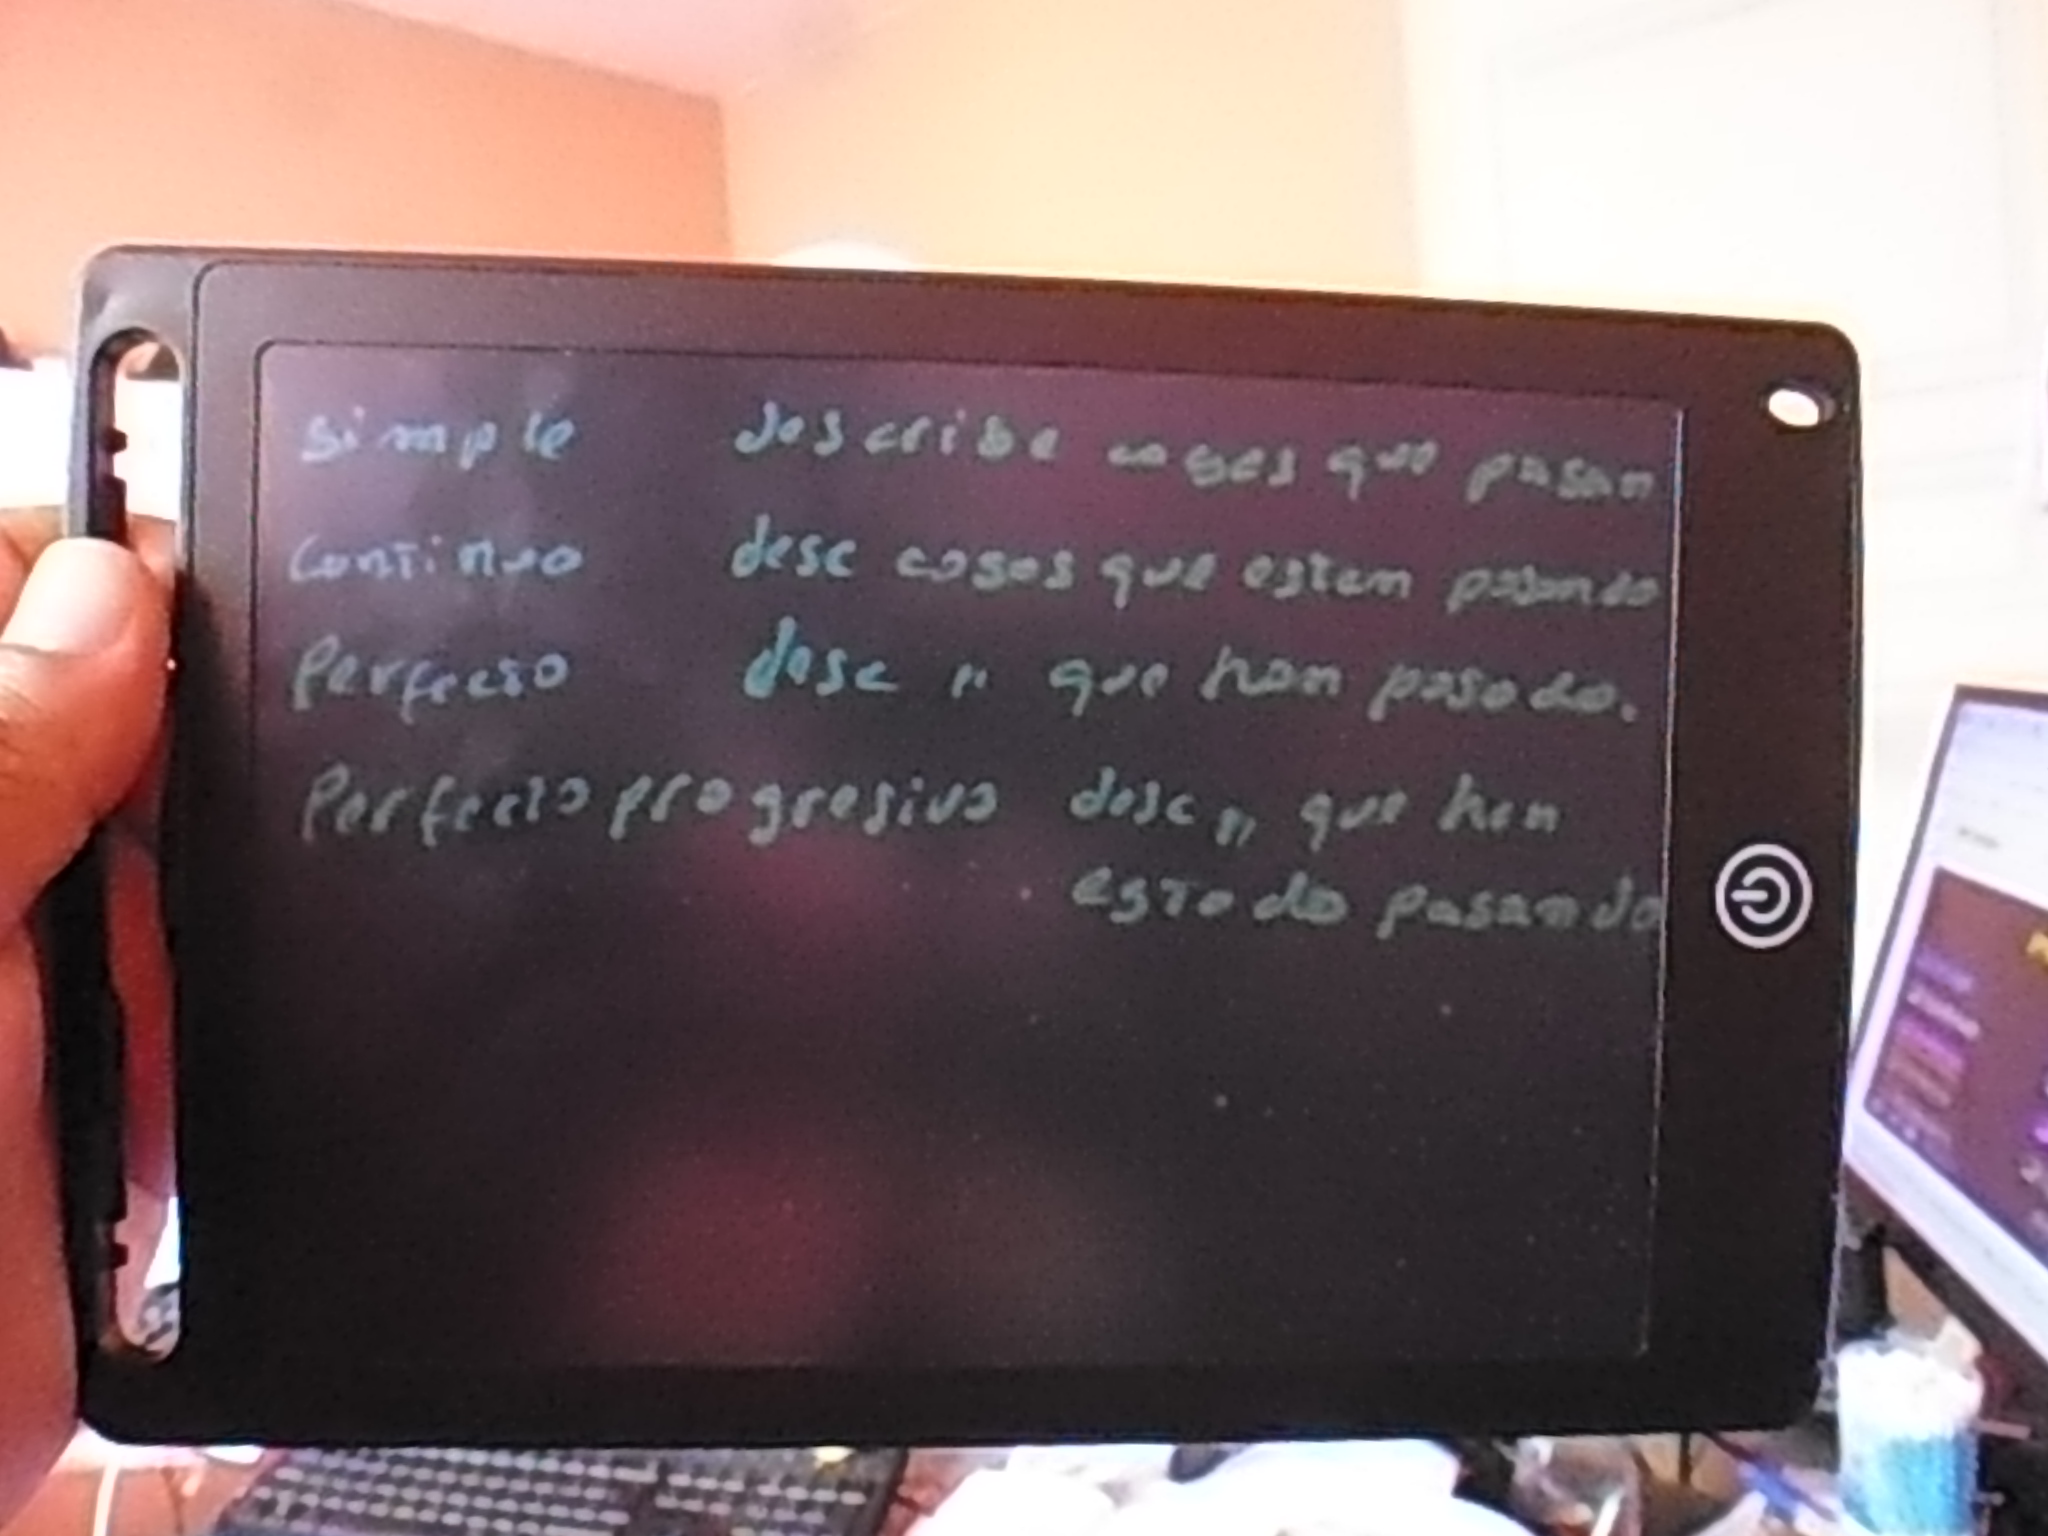 simple describe cosas que pasan
Continuo desc cosas que estan pasando
Perfecto desc " que han pasado.
Perfecto progresivo desc " que han
estado pasando